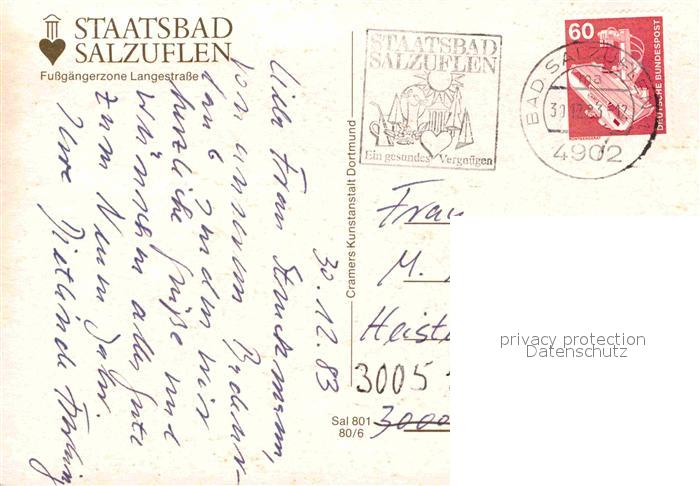 STAATSBAD
SALZUFLEN
Fußgängerzone Langestraße
30.12.83
Liebe Frau
von unserem
senden wir
herzliche Grüße und
wünschen alles Gute
zum Neuen Jahr.
Ihre Dietlinde
Cramers Kunstanstalt Dortmund
Sal 801
80/6
STAATSBAD
SALZUFLEN
Ein gesundes Vergnügen
BAD SALZUFLEN
30.12.83
4902
60
DEUTSCHE BUNDESPOST
Frau
M.
Heist
3005
3000
privacy protection
Datenschutz